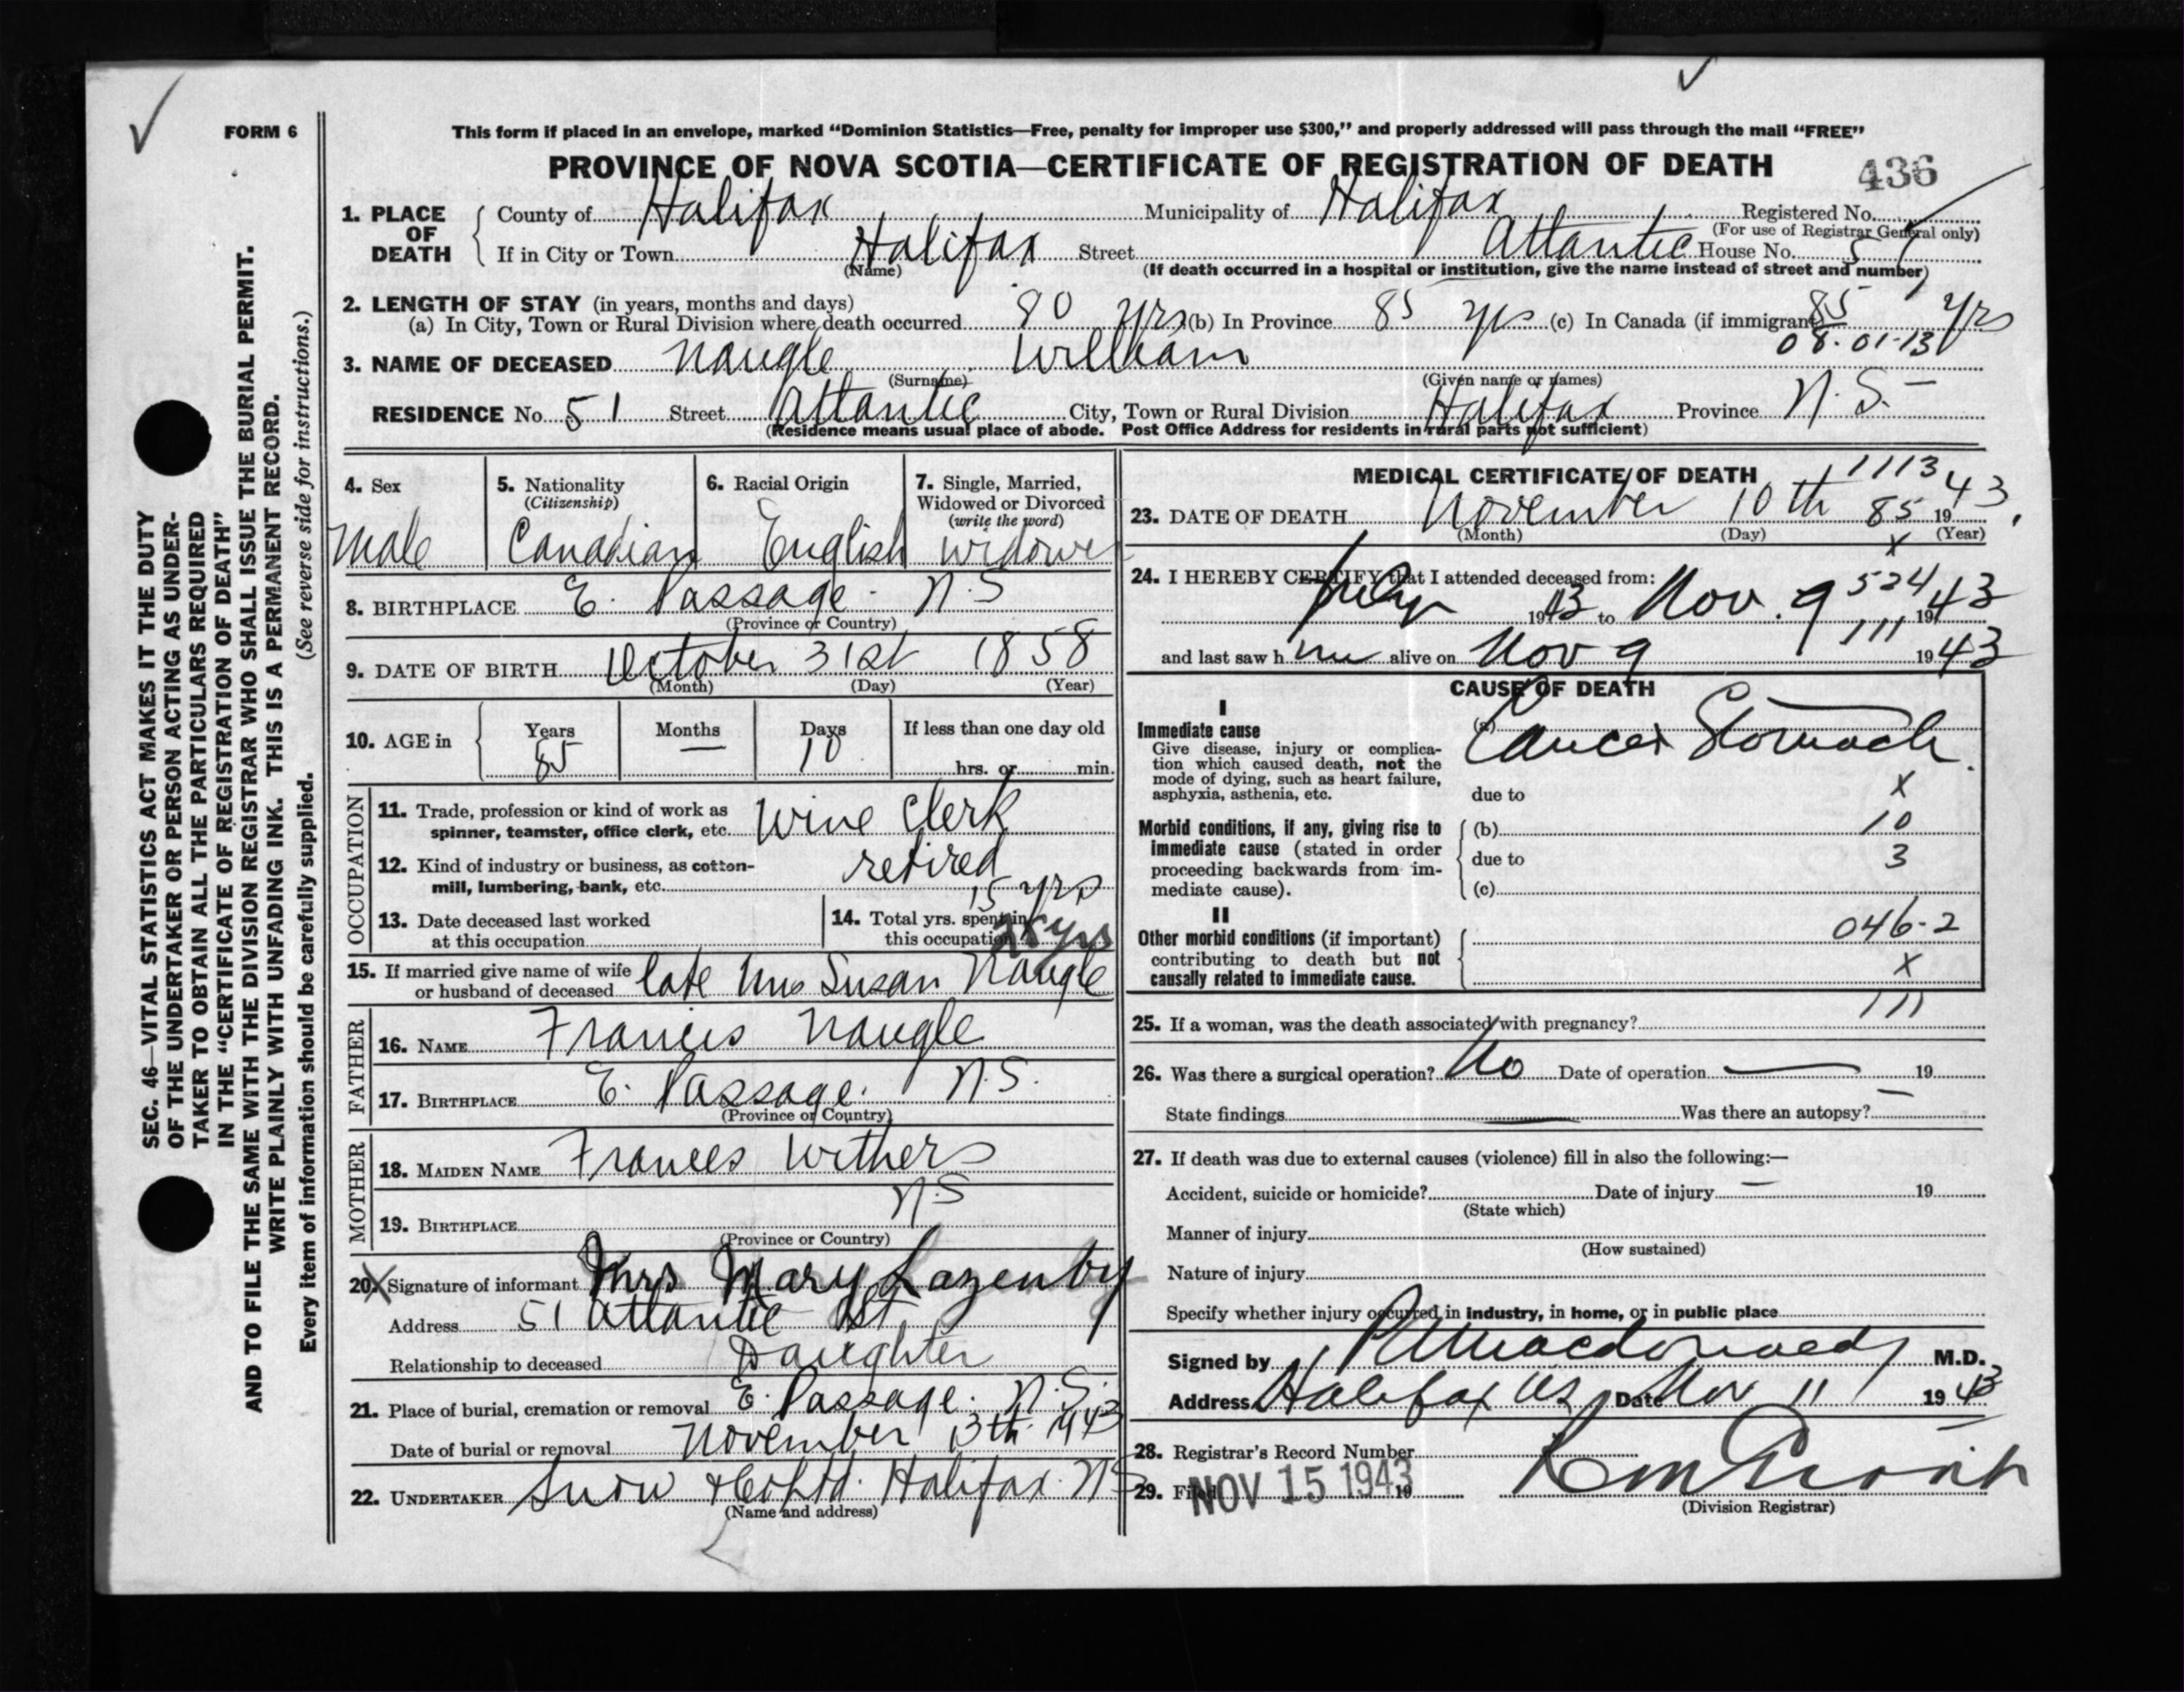 FORM 6
This form if placed in an envelope, marked “Dominion Statistics—Free, penalty for improper use $300,” and properly addressed will pass through the mail “FREE”
PROVINCE OF NOVA SCOTIA—CERTIFICATE OF REGISTRATION OF DEATH
436
1. PLACE OF DEATH
County of Halifax Municipality of Halifax Registered No.
(For use of Registrar General only)
If in City or Town Halifax Street Atlantic House No. 51
(Name)
(If death occurred in a hospital or institution, give the name instead of street and number)
2. LENGTH OF STAY (in years, months and days)
(a) In City, Town or Rural Division where death occurred 80 yrs (b) In Province 85 yrs (c) In Canada (if immigrant) 85 yrs
08-01-13
3. NAME OF DECEASED Naugle William
(Surname) (Given name or names)
RESIDENCE No. 51 Street Atlantic City, Town or Rural Division Halifax Province N.S.
(Residence means usual place of abode. Post Office Address for residents in rural parts not sufficient)
4. Sex
Male
5. Nationality
(Citizenship)
Canadian
6. Racial Origin
English
7. Single, Married,
Widowed or Divorced
(write the word)
Widower
8. BIRTHPLACE E. Passage. N.S
(Province or Country)
9. DATE OF BIRTH October 31st 1858
(Month) (Day) (Year)
10. AGE in
Years 85
Months —
Days 10
If less than one day old
hrs. or min.
OCCUPATION
11. Trade, profession or kind of work as
spinner, teamster, office clerk, etc. Wine Clerk
12. Kind of industry or business, as cotton-
mill, lumbering, bank, etc. retired
13. Date deceased last worked
at this occupation
15 yrs
14. Total yrs. spent in
this occupation
15. If married give name of wife
or husband of deceased late Mrs Susan Naugle
FATHER
16. NAME Francis Naugle
17. BIRTHPLACE E. Passage. N.S.
(Province or Country)
MOTHER
18. MAIDEN NAME Frances Withers
19. BIRTHPLACE N.S
(Province or Country)
20. Signature of informant Mrs Mary Lazenby
Address 51 Atlantic St
Relationship to deceased Daughter
21. Place of burial, cremation or removal E. Passage. N.S.
Date of burial or removal November 13th 1943
22. UNDERTAKER Snow & Co Ltd. Halifax. NS
(Name and address)
MEDICAL CERTIFICATE OF DEATH
1113
23. DATE OF DEATH November 10th 1943
85
(Month) (Day) (Year)
x
24. I HEREBY CERTIFY that I attended deceased from:
524
July 1943 to Nov. 9 1943
111
and last saw him alive on Nov 9 1943
CAUSE OF DEATH
I
Immediate cause
Give disease, injury or complica-
tion which caused death, not the
mode of dying, such as heart failure,
asphyxia, asthenia, etc.
(a) Cancer Stomach
due to
x
Morbid conditions, if any, giving rise to
immediate cause (stated in order
proceeding backwards from im-
mediate cause).
(b) 10
due to 3
(c)
II
Other morbid conditions (if important)
contributing to death but not
causally related to immediate cause.
046-2
x
111
25. If a woman, was the death associated with pregnancy?
26. Was there a surgical operation? No Date of operation — 19
State findings — Was there an autopsy? —
27. If death was due to external causes (violence) fill in also the following:—
Accident, suicide or homicide? Date of injury — 19
(State which)
Manner of injury
(How sustained)
Nature of injury
Specify whether injury occurred in industry, in home, or in public place
Signed by Macdonald M.D.
Address Halifax NS Date Nov 11 1943
28. Registrar's Record Number
29. Filed NOV 15 1943 19
(Division Registrar)
SEC. 46—VITAL STATISTICS ACT MAKES IT THE DUTY
OF THE UNDERTAKER OR PERSON ACTING AS UNDER-
TAKER TO OBTAIN ALL THE PARTICULARS REQUIRED
IN THE “CERTIFICATE OF REGISTRATION OF DEATH”
AND TO FILE THE SAME WITH THE DIVISION REGISTRAR WHO SHALL ISSUE THE BURIAL PERMIT.
WRITE PLAINLY WITH UNFADING INK. THIS IS A PERMANENT RECORD.
Every item of information should be carefully supplied. (See reverse side for instructions.)